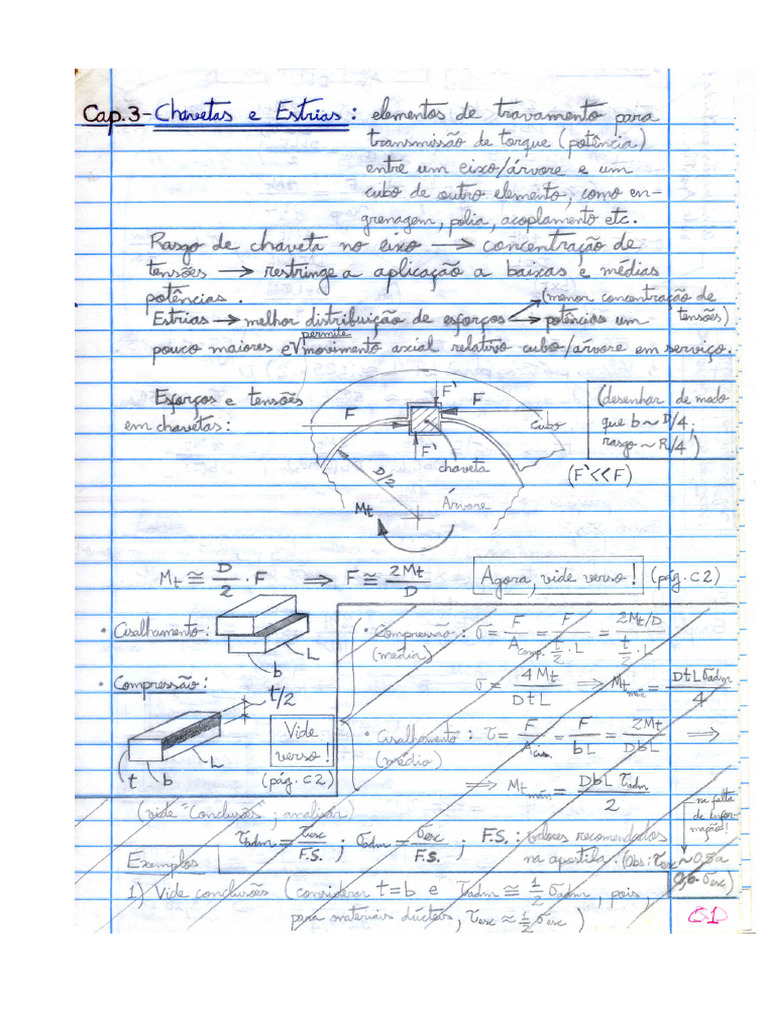 Cap.3- Chavetas e Estrias: elementos de travamento para
transmissão de torque (potência)
entre um eixo/árvore e um
cubo de outro elemento, como en-
grenagem, polia, acoplamento etc.
Rasgo de chaveta no eixo → concentração de
tensões → restringe a aplicação a baixas e médias
potências.
(menor concentração de
tensões)
Estrias → melhor distribuição de esforços → potências um
pouco maiores e permite movimento axial relativo cubo/árvore em serviço.
Esforços e tensões
em chavetas:
F
F'
F
cubo
F'
chaveta
D/2
Árvore
Mt
(desenhar de modo
que b ~ D/4;
rasgo ~ R/4)
(F'<<F)
Mt ≅ D/2 · F ⇒ F ≅ 2Mt/D
Agora, vide verso! (pág. C2)
• Cisalhamento:
L
b
• Compressão:
t/2
L
t b
Vide
verso!
(pág. C2)
• Compressão: σ = F/Acomp. = F/(t/2 · L) = (2Mt/D)/(t/2 · L)
(média)
σ = 4Mt/DtL ⇒ Mtmáx = DtLσadm/4
• Cisalhamento: τ = F/Acis. = F/bL = 2Mt/DbL ⇒
(médio)
⇒ Mtmáx = DbL τadm/2
(vide "Conclusões"; analisar)
na falta
de infor-
mação!
τadm = τesc/F.S. ; σadm = σesc/F.S. ; F.S.: valores recomendados
na apostila. (Obs: τesc ~ 0,5 a
0,6 σesc)
Exemplos
1) Vide conclusões (considerar t=b e τadm ≅ 1/2 σadm, pois,
para materiais dúcteis, τesc ≈ 1/2 σesc)
C1